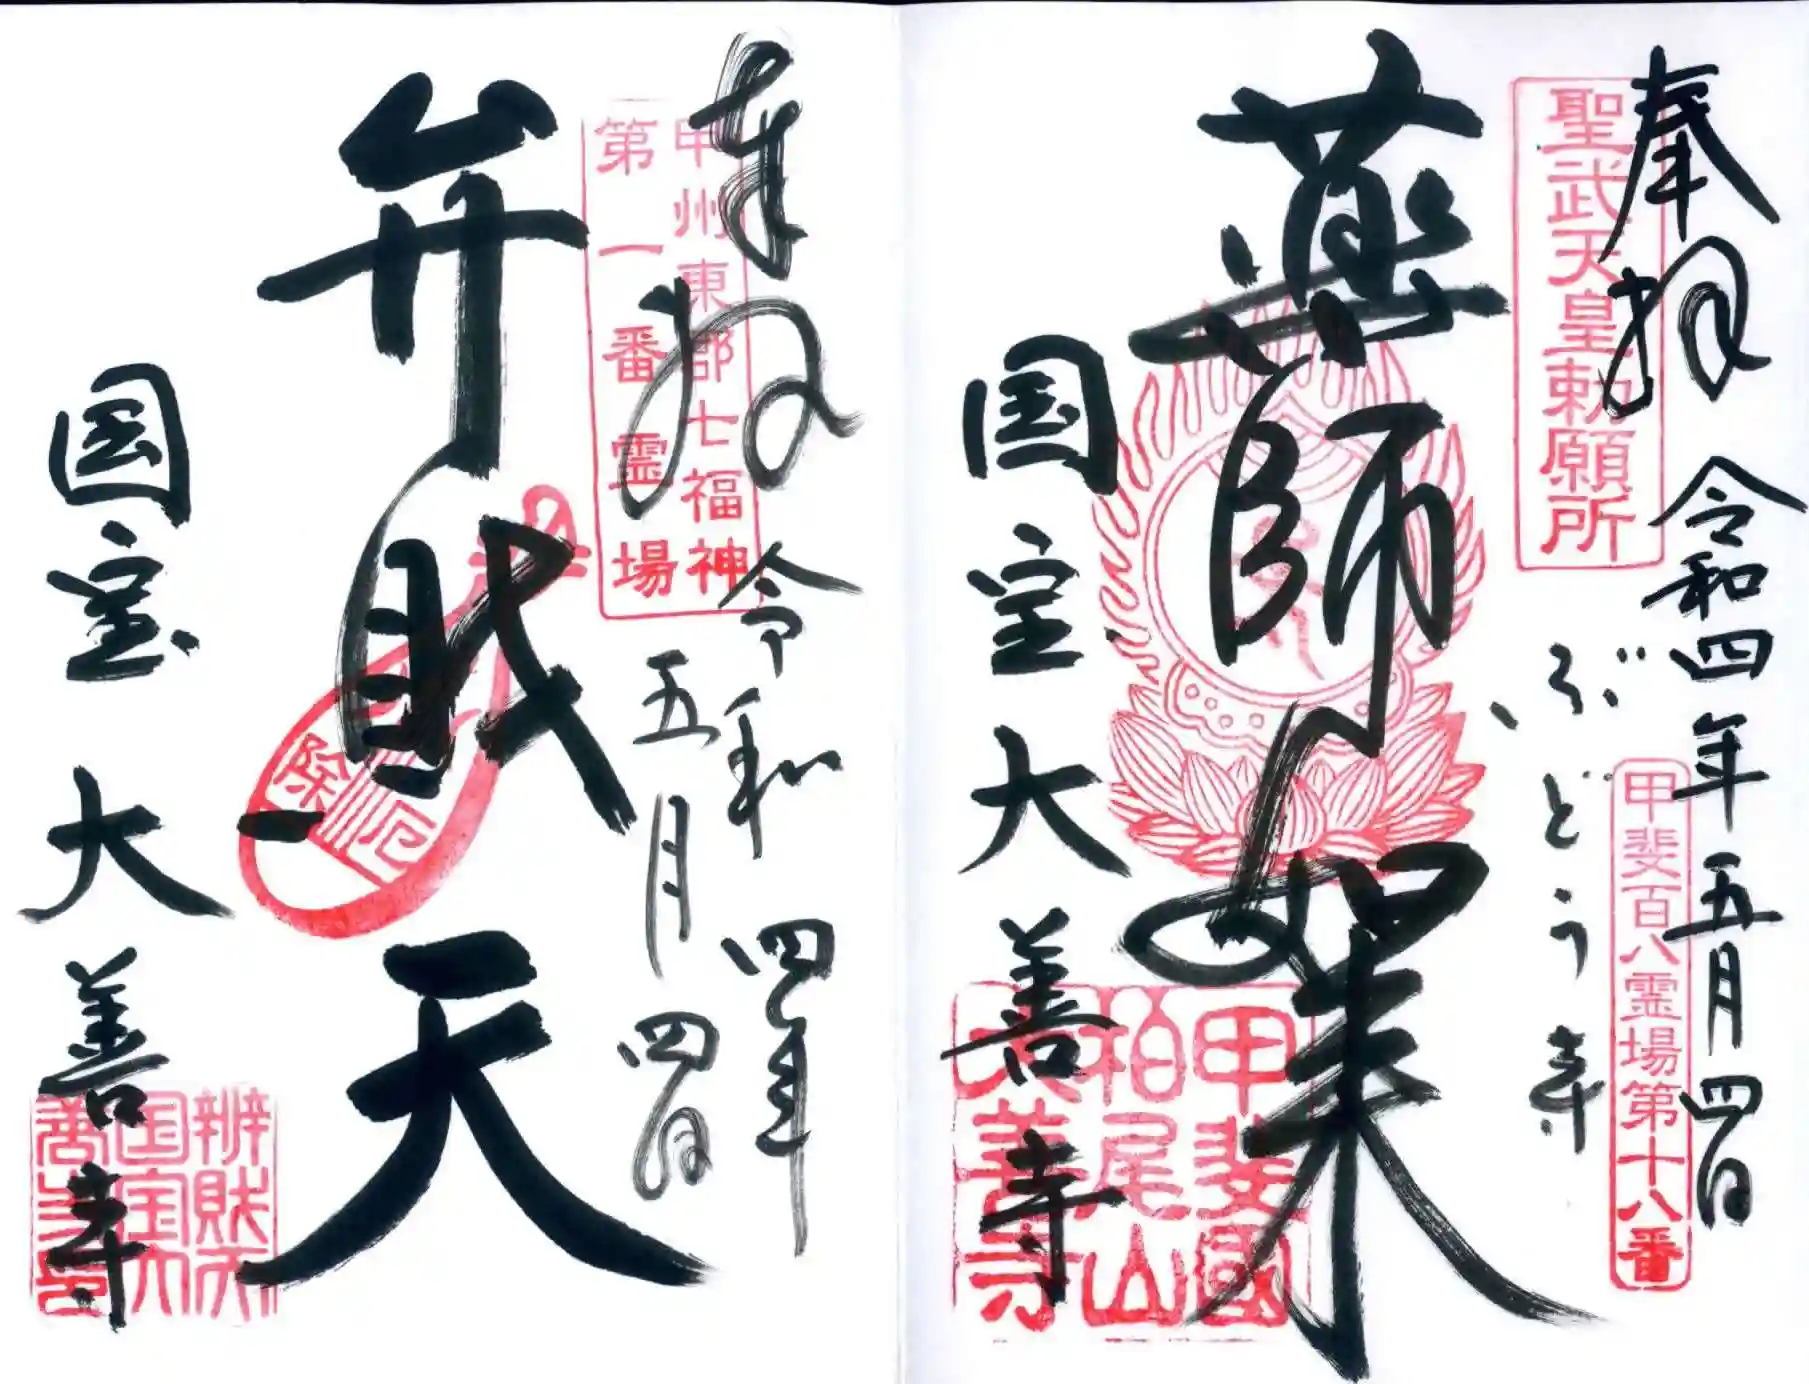 奉拝
令和四年五月四日
聖武天皇勅願所
甲斐百八霊場第十八番
ぶどう寺
薬師如来
甲斐國
柏尾山
大善寺
国宝大善寺
奉拝
令和四年
五月四日
甲州東郡七福神
第一番霊場
弁財天
除厄
国宝大善寺
辨財天
国宝大
善寺印